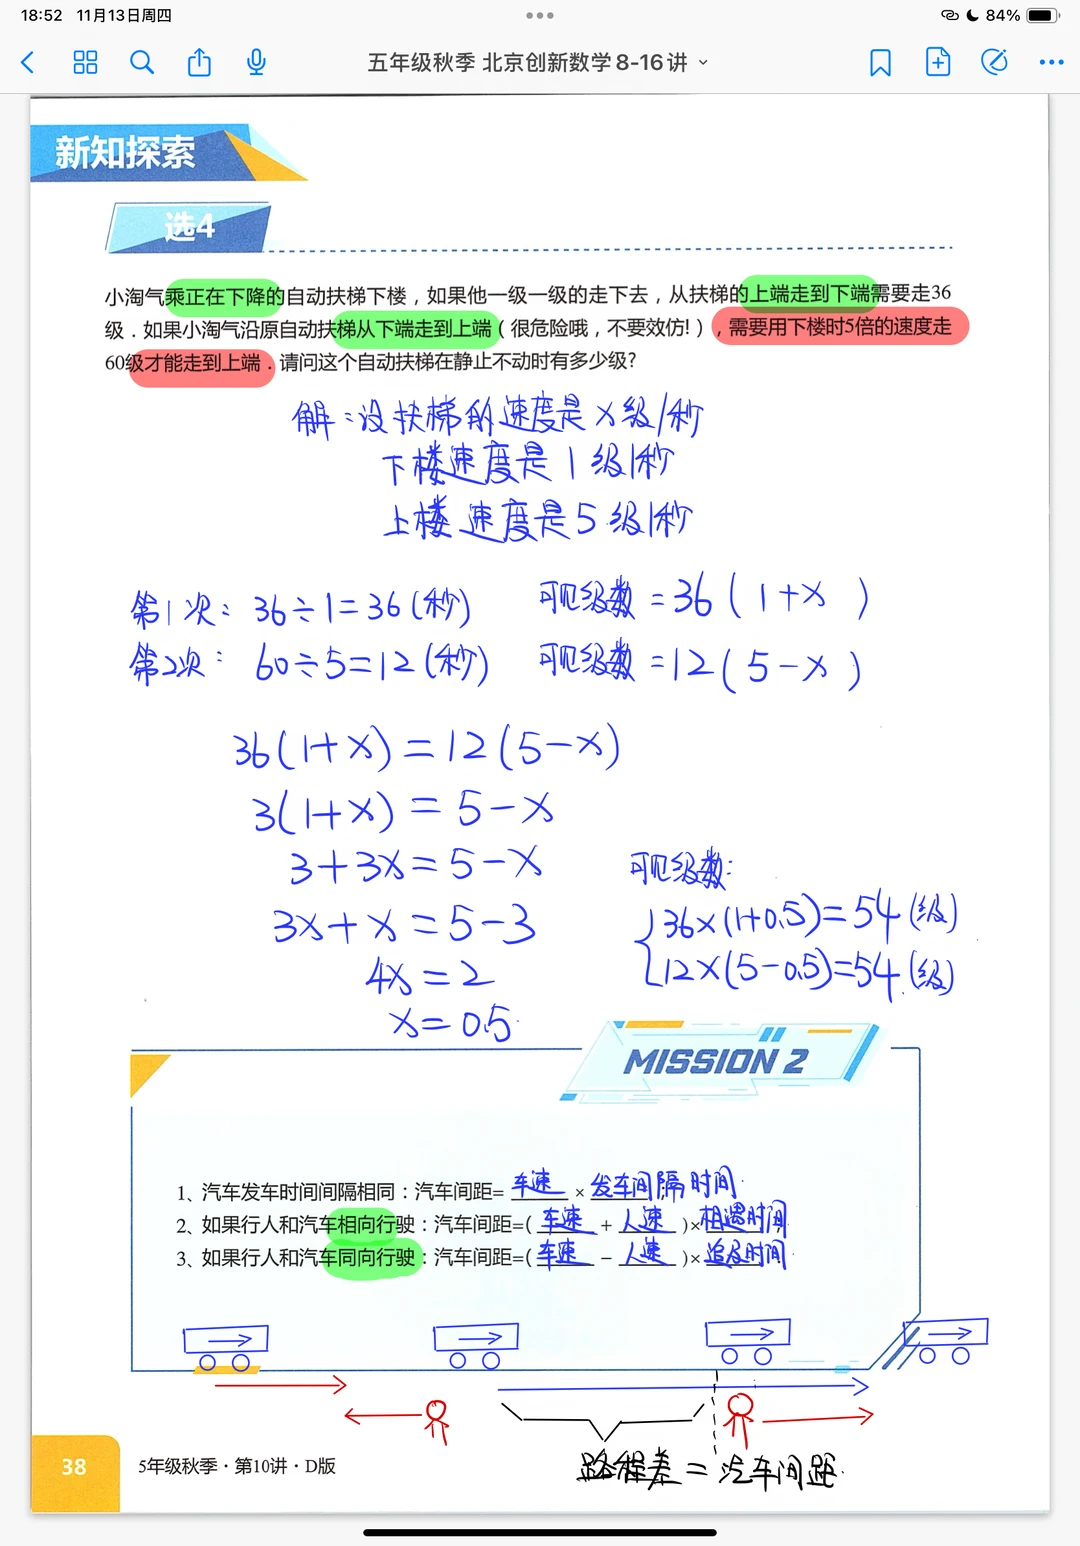 18:52 11月13日周四
84%
五年级秋季 北京创新数学 8-16 讲
新知探索
选4
小淘气乘正在下降的自动扶梯下楼，如果他一级一级的走下去，从扶梯的上端走到下端需要走36
级．如果小淘气沿原自动扶梯从下端走到上端（很危险哦，不要效仿!），需要用下楼时5倍的速度走
60级才能走到上端．请问这个自动扶梯在静止不动时有多少级?
解：设扶梯的速度是x级/秒
下楼速度是1级/秒
上楼速度是5级/秒
第1次：36÷1=36(秒) 可见级数=36(1+x)
第2次：60÷5=12(秒) 可见级数=12(5-x)
36(1+x)=12(5-x)
3(1+x)=5-x
3+3x=5-x
3x+x=5-3
4x=2
x=0.5
可见级数：
36×(1+0.5)=54(级)
12×(5-0.5)=54(级)
MISSION 2
1、汽车发车时间间隔相同：汽车间距=车速×发车间隔时间
2、如果行人和汽车相向行驶：汽车间距=(车速+人速)×相遇时间
3、如果行人和汽车同向行驶：汽车间距=(车速-人速)×追及时间
路程差=汽车间距
38 5年级秋季·第10讲·D版